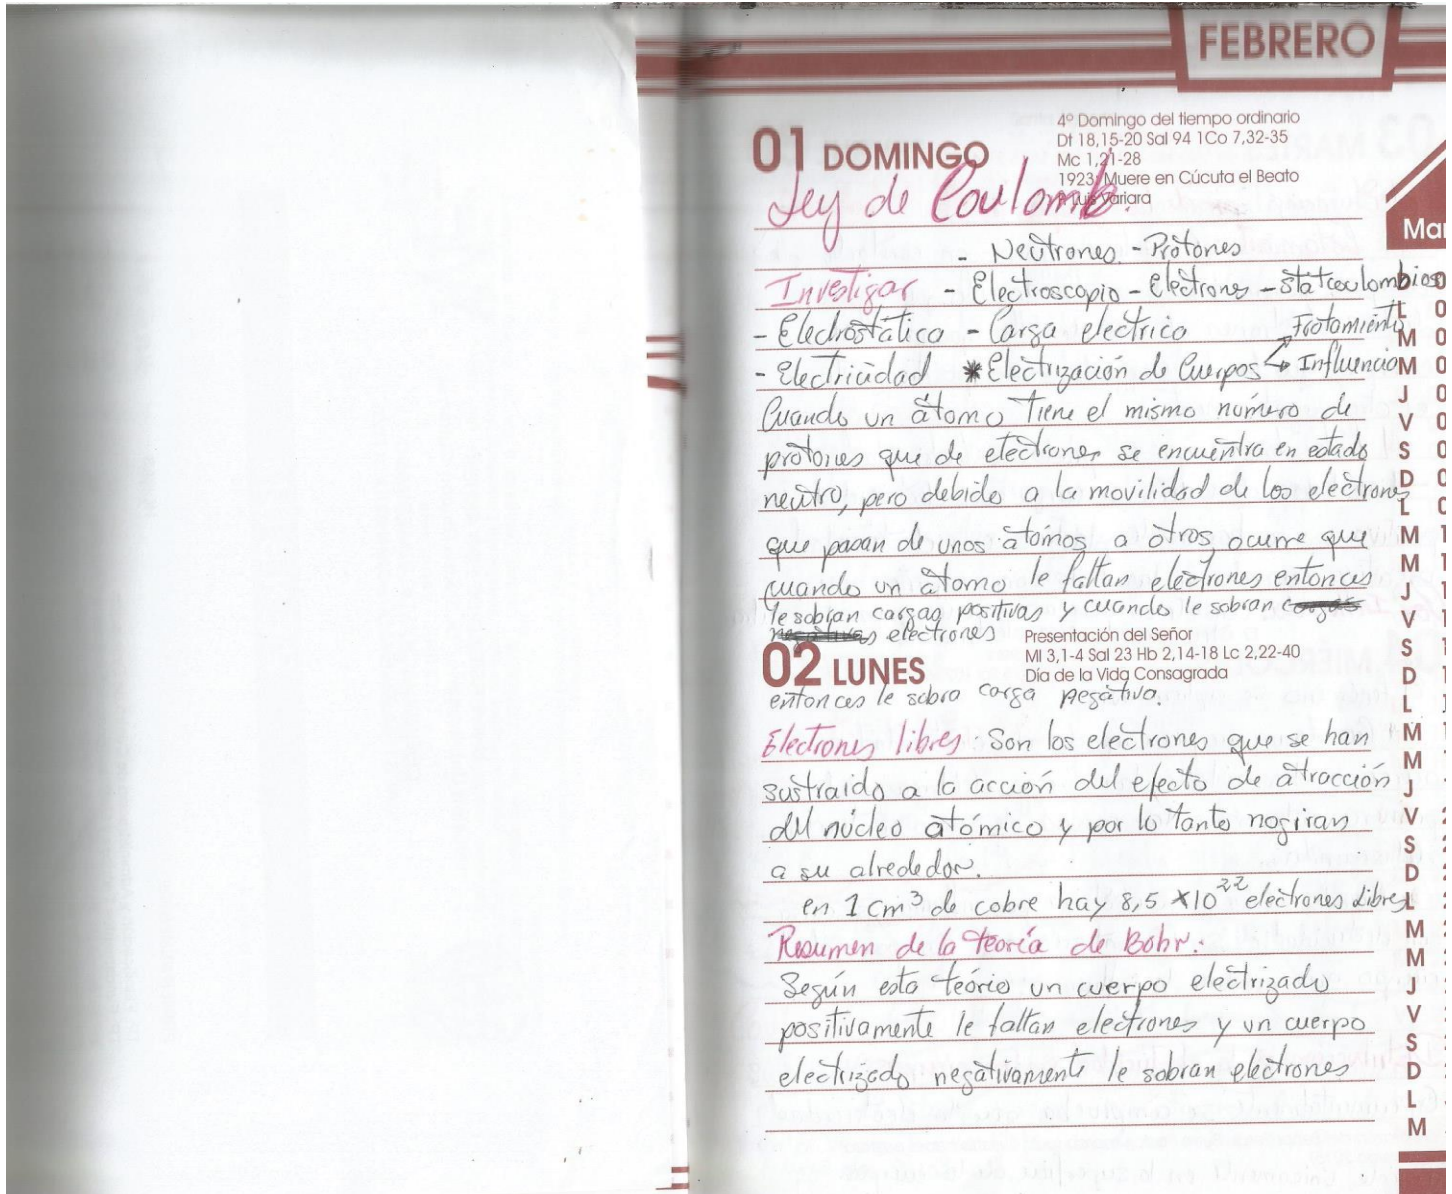 FEBRERO
01 DOMINGO
4º Domingo del tiempo ordinario
Dt 18,15-20 Sal 94 1Co 7,32-35
Mc 1,21-28
1923: Muere en Cúcuta el Beato
Luis Variara
Ley de Coulomb.
- Neutrones. - Protones
Investigar - Electroscopio - Electrones - Statcoulombios
- Electrostática - Carga electrica Frotamiento
- Electricidad * Electrización de Cuerpos Influencia
Cuando un átomo tiene el mismo número de
protones que de electrones se encuentra en estado
neutro, pero debido a la movilidad de los electrones
que pasan de unos átomos a otros, ocurre que
cuando un átomo le faltan electrones entonces
le sobran cargas positivas y cuando le sobran cargas
negativas electrones
02 LUNES
Presentación del Señor
Ml 3,1-4 Sal 23 Hb 2,14-18 Lc 2,22-40
Día de la Vida Consagrada
entonces le sobra carga negativa.
Electrones libres: Son los electrones que se han
sustraido a la acción del efecto de atracción
del núcleo atómico y por lo tanto no giran
a su alrededor.
en 1 cm³ de cobre hay 8,5 ×10²² electrones libres
Resumen de la teoría de Bohr:
Según esta teória un cuerpo electrizado
positivamente le faltan electrones y un cuerpo
electrizado negativamente le sobran electrones
Mar
D 0
L 0
M 0
M 0
J 0
V 0
S 0
D 0
L 0
M 1
M 1
J 1
V 1
S 1
D 1
L 1
M 1
M
J
V 2
S 2
D 2
L 2
M 2
M 2
J
V
S 2
D 2
L
M